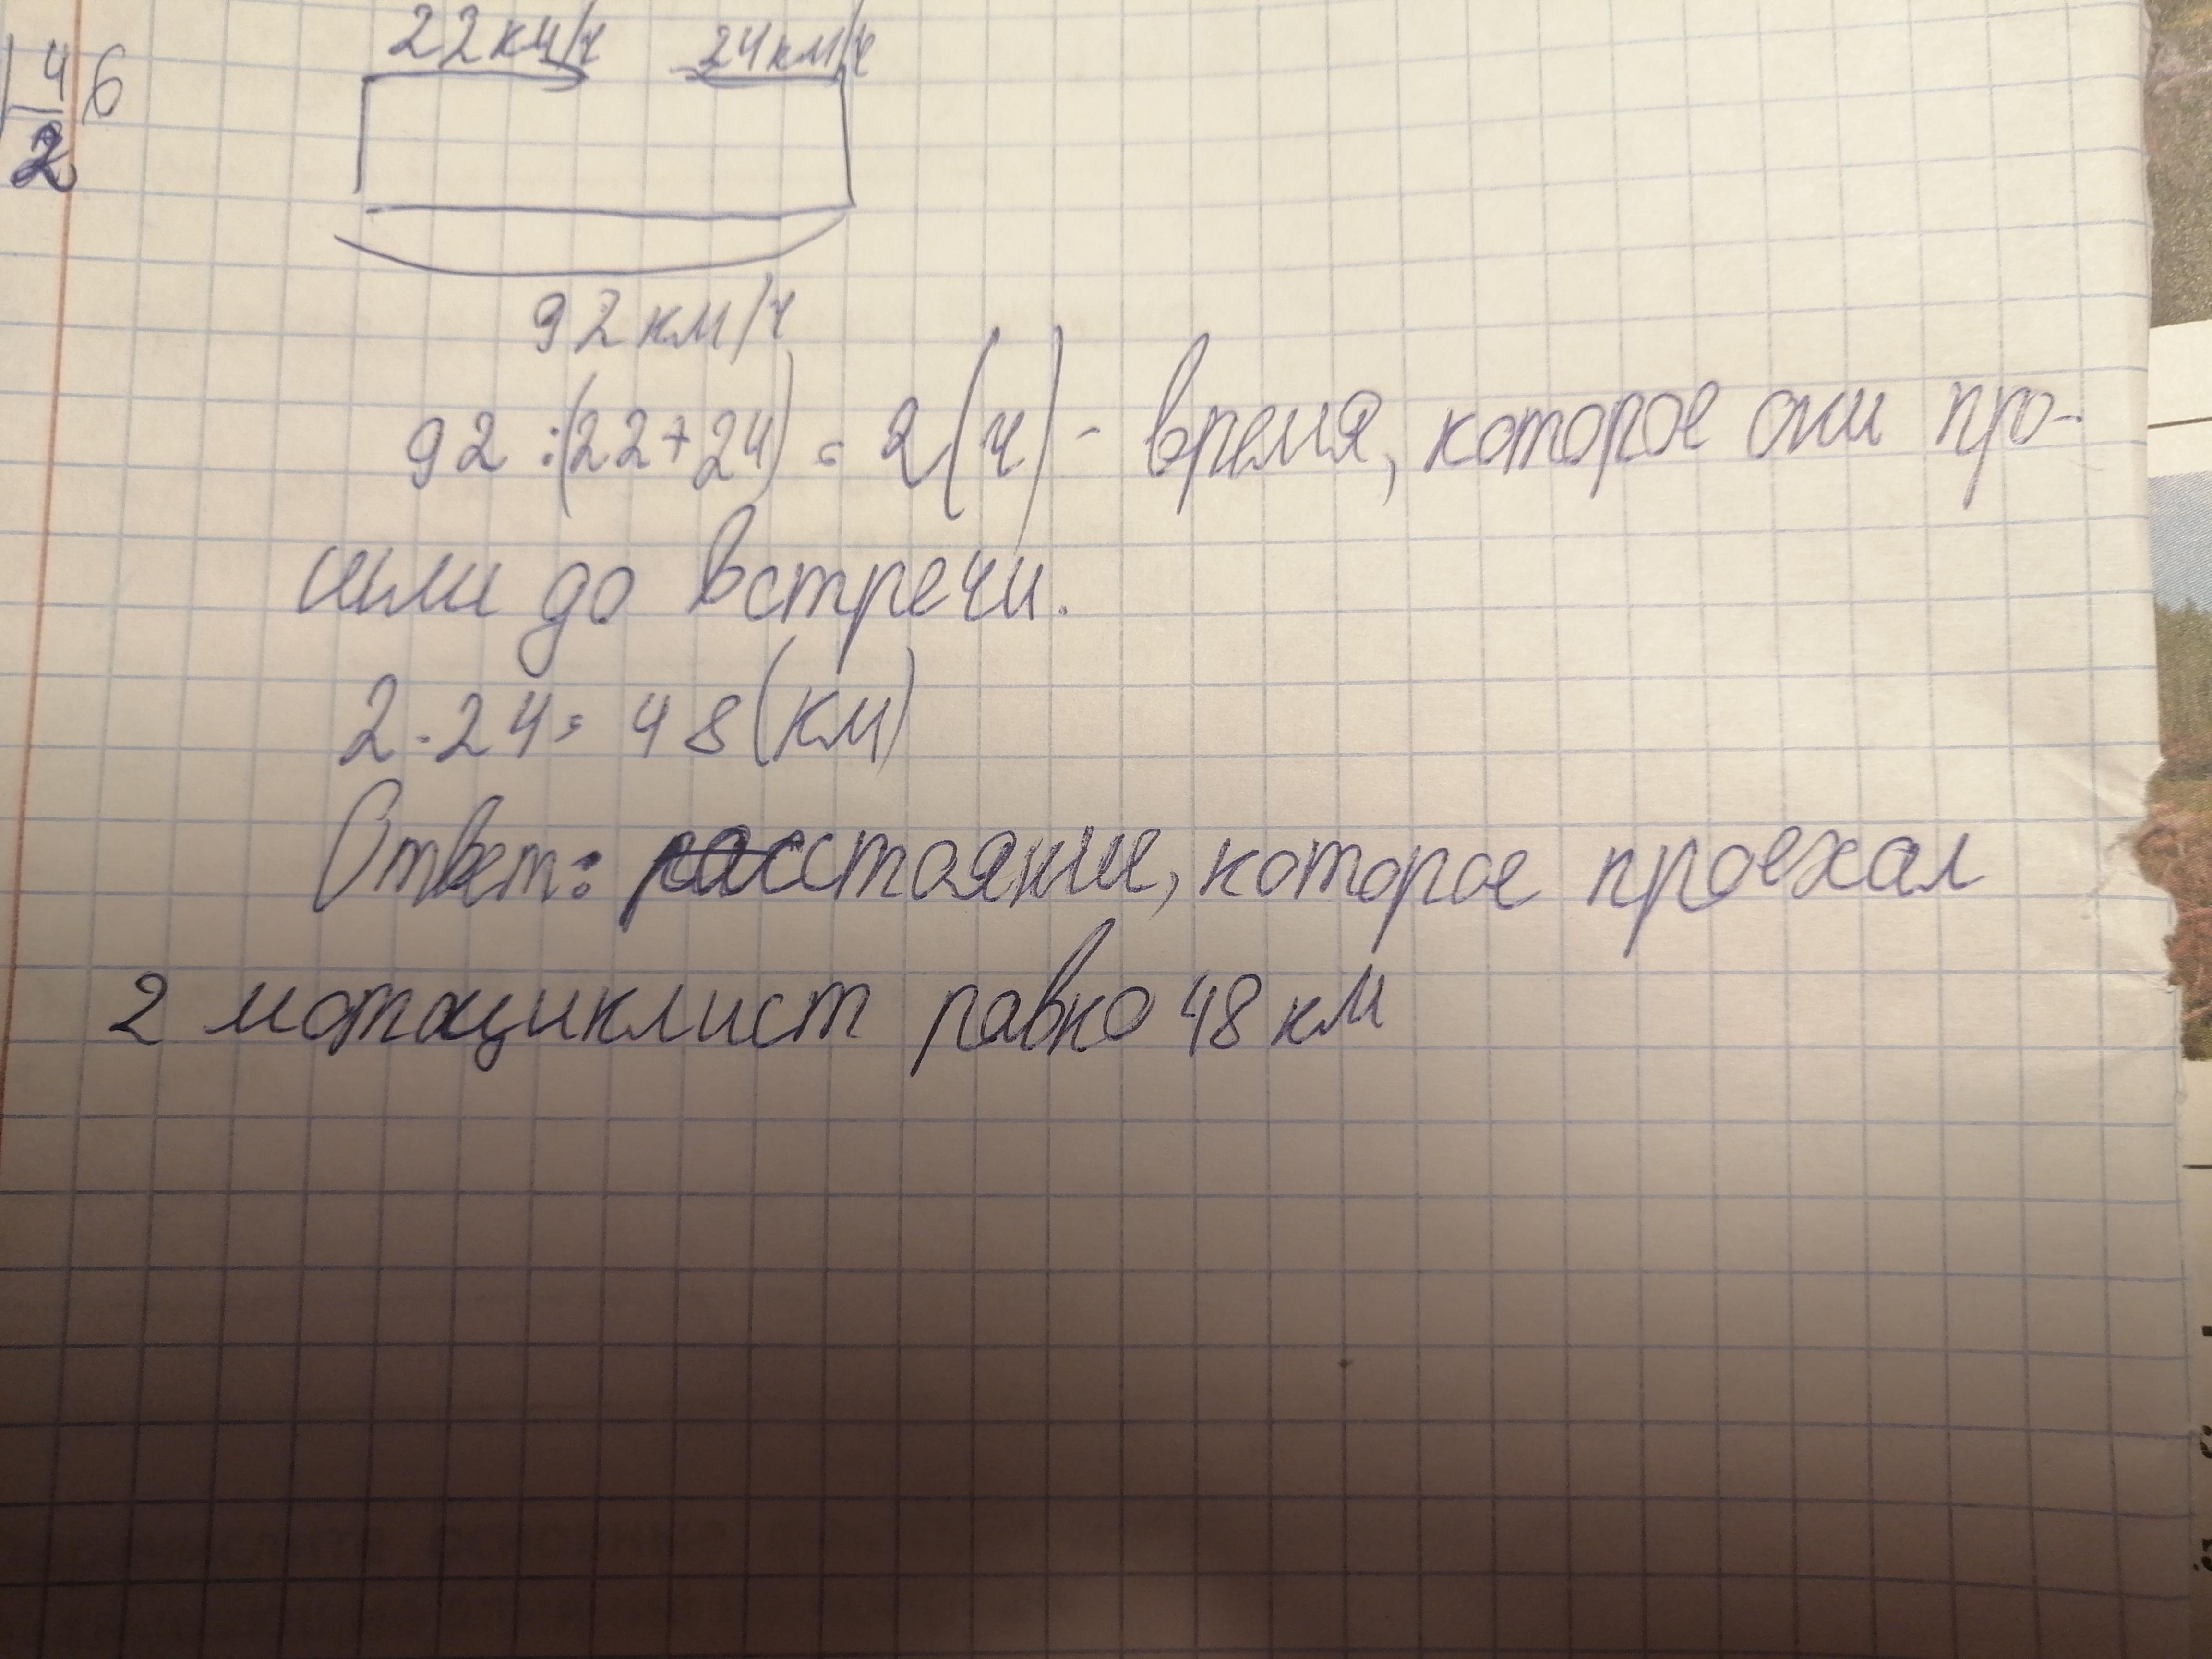 22км/ч 24км/ч
46
2
92км/ч
92:(22+24)=2(ч)- время, которое они про-
шли до встречи.
2·24=48(км)
Ответ: расстояние, которое проехал
2 мотоциклист равно 48 км